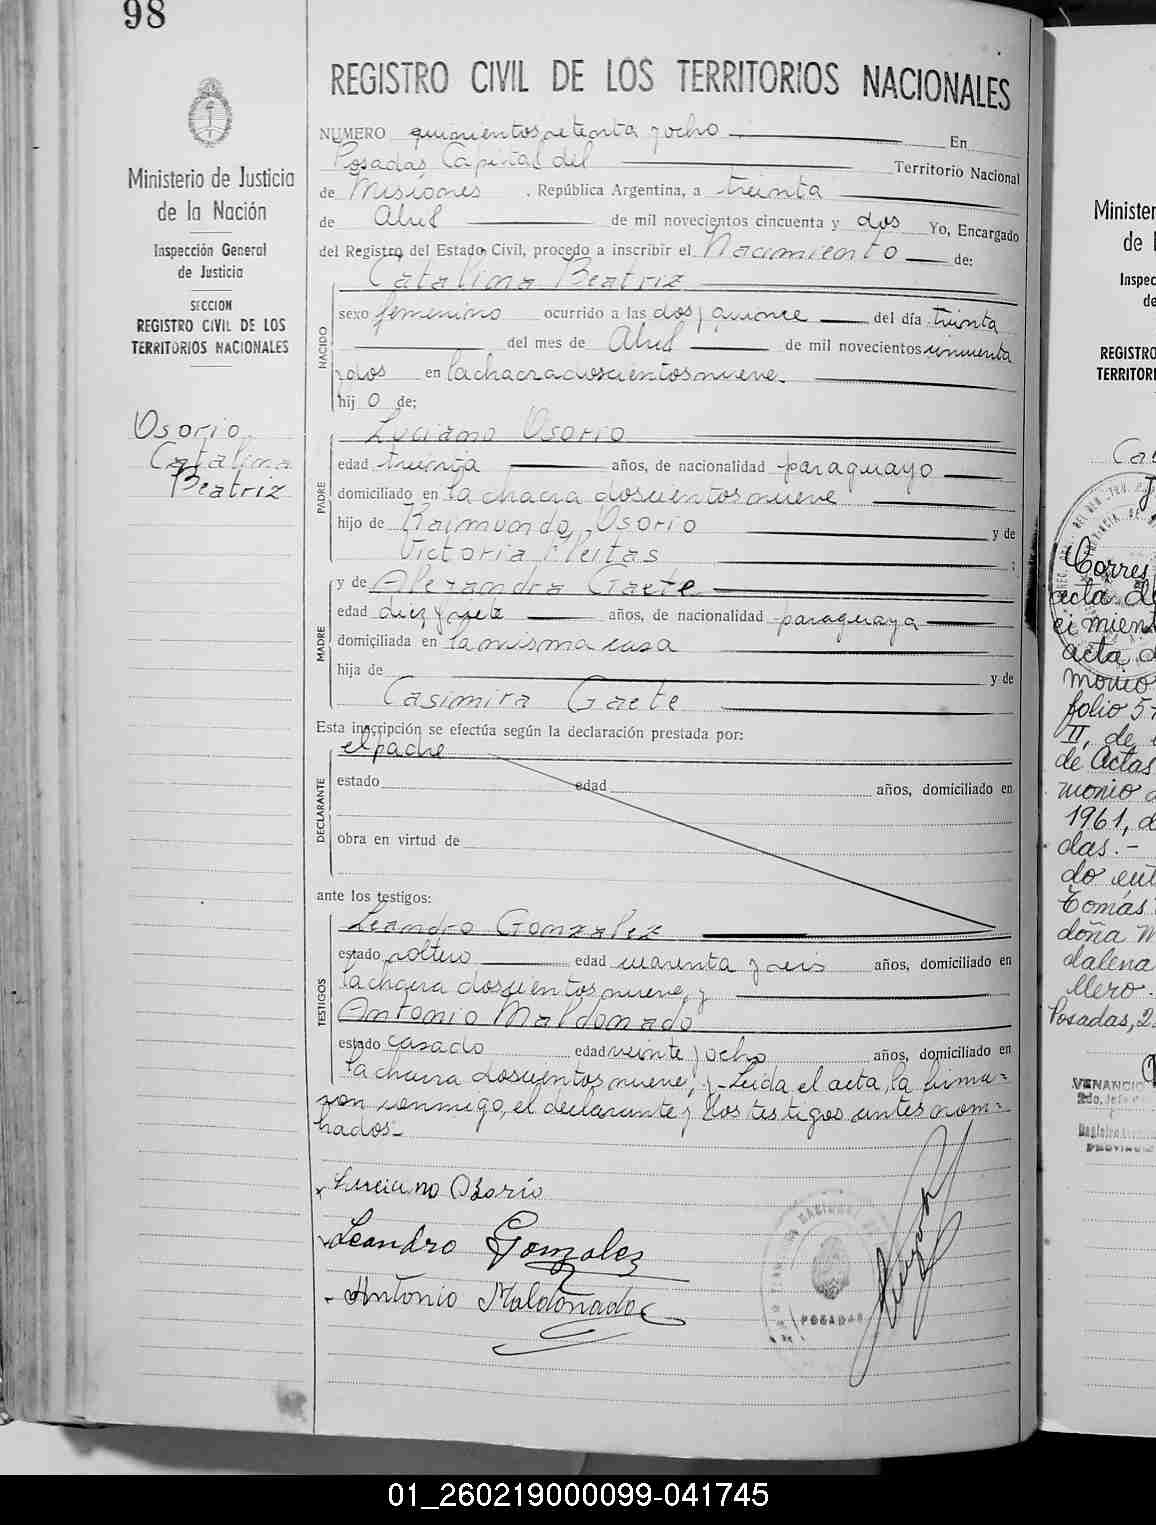 98
Ministerio de Justicia
de la Nación
Inspección General
de Justicia
SECCION
REGISTRO CIVIL DE LOS
TERRITORIOS NACIONALES
Osorio
Catalina
Beatriz
REGISTRO CIVIL DE LOS TERRITORIOS NACIONALES
NUMERO quinientos setenta y ocho En
Posadas Capital del Territorio Nacional
de Misiones . República Argentina, a treinta
de Abril de mil novecientos cincuenta y dos Yo, Encargado
del Registro del Estado Civil, procedo a inscribir el Nacimiento de:
Catalina Beatriz
NACIDO
sexo femenino ocurrido a las dos y quince del día treinta
del mes de Abril de mil novecientos cincuenta
y dos en la chacra doscientos nueve.
hij o de;
Luciano Osorio
PADRE
edad treinta años, de nacionalidad paraguayo
domiciliado en la chacra doscientos nueve
hijo de Raimundo Osorio y de
Victoria Fleitas ;
y de Alexandra Gaete
MADRE
edad diez y siete años, de nacionalidad paraguaya
domiciliada en la misma casa
hija de y de
Casimira Gaete
Esta inscripción se efectúa según la declaración prestada por:
el padre
DECLARANTE
estado edad años, domiciliado en
obra en virtud de
ante los testigos:
Leandro Gonzalez
TESTIGOS
estado soltero edad cuarenta y seis años, domiciliado en
la chacra doscientos nueve, y
Antonio Maldonado
estado casado edad veinte y ocho años, domiciliado en
la chacra doscientos nueve, y - Leida el acta, la firma-
ron conmigo, el declarante y los testigos antes nom-
brados.-
Luciano Osorio
Leandro Gonzalez
Antonio Maldonado
POSADAS
Minister
de l
Inspec
de
REGISTRO
TERRITOR
Corres
acta de
cimient
acta d
monio
folio 5
II, de
de Actas
monio
1961, d
das.-
do ent
Tomás
doña M
dalena
llero.
Posadas, 2
VENANCIO
2do. Jefe
PROVINCI
01_260219000099-041745